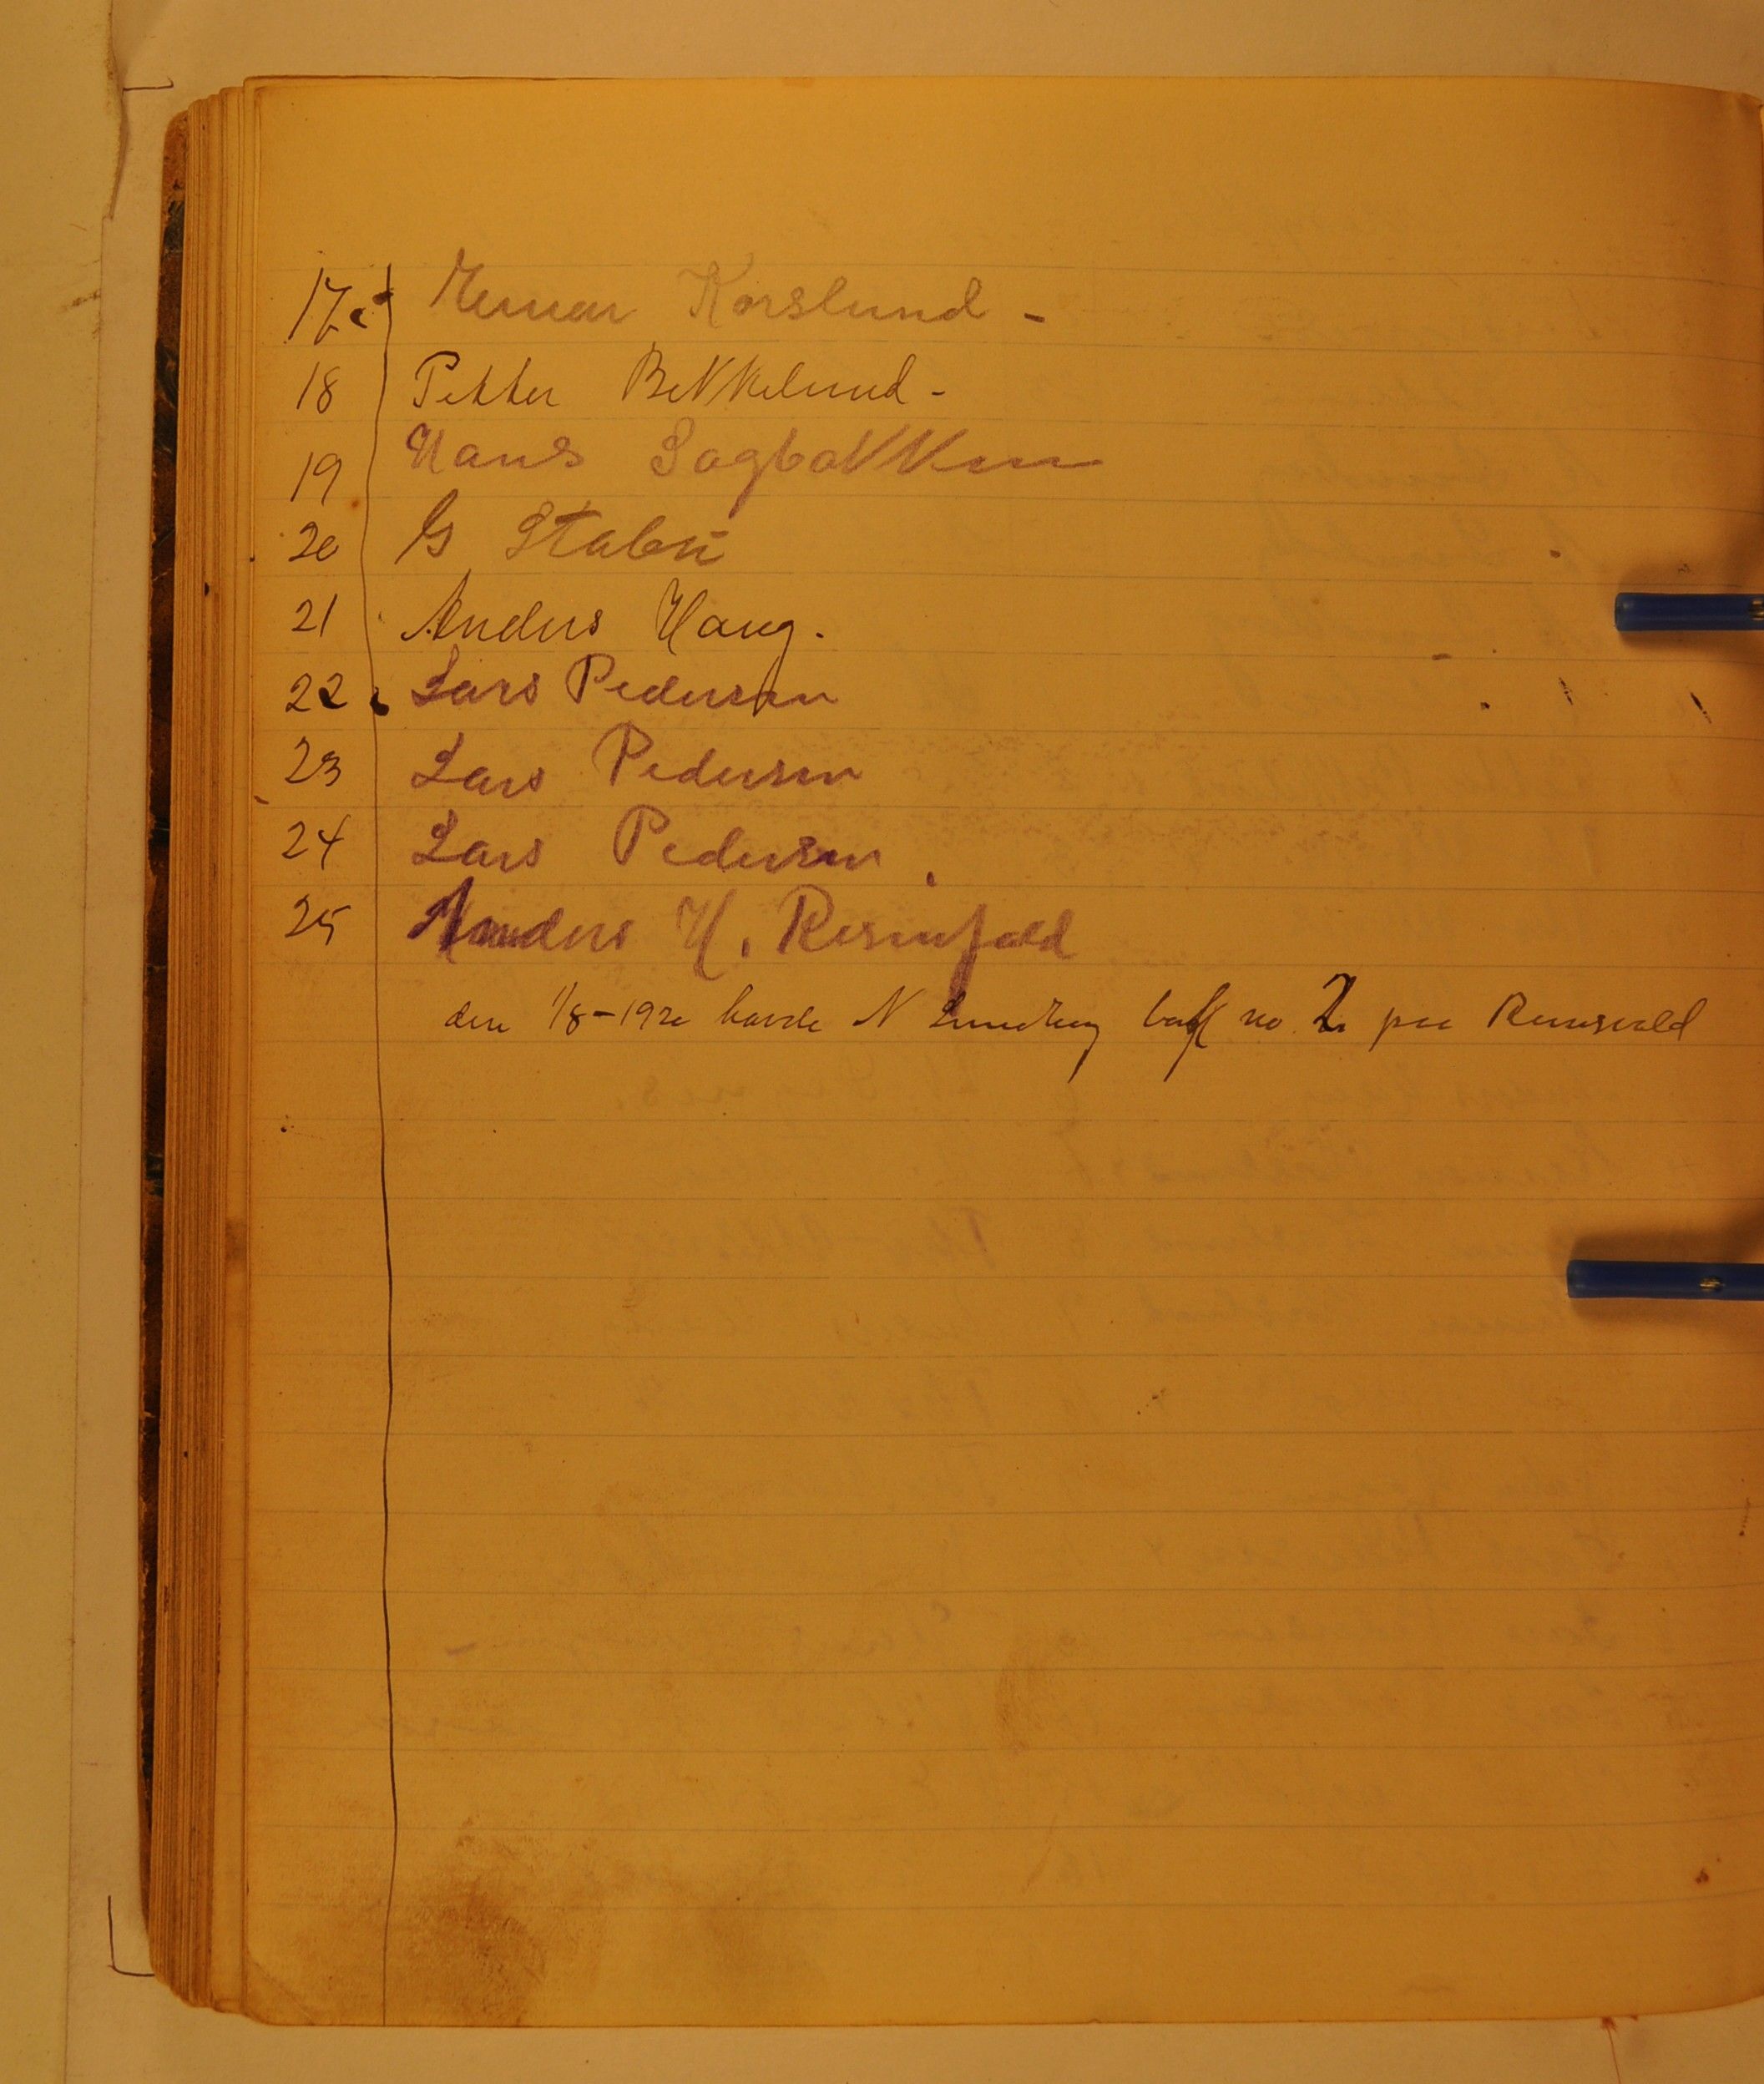 17 Korslund -
18 Petter Bekkelund -
19 Hans Sagbakken
20 G Stabu
21 Anders Haug.
22 Lars Pedersen
23 Lars Pedersen
24 Lars Pedersen.
25 Anders H.
den 1/8-1920 havde N no 2 paa